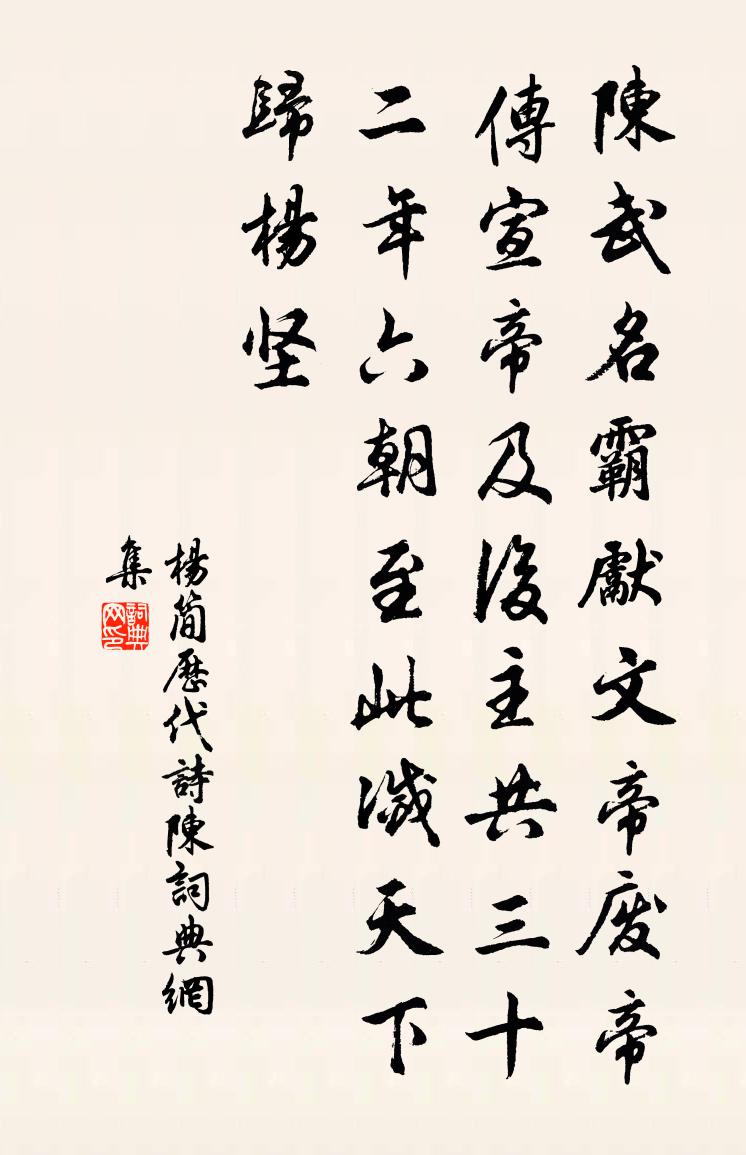 陳武名霸獻文帝廢帝
傳宣帝及後主共三十
二年六朝至此滅天下
歸楊坚
楊简歷代詩陳詞典網
集
詞典
网印